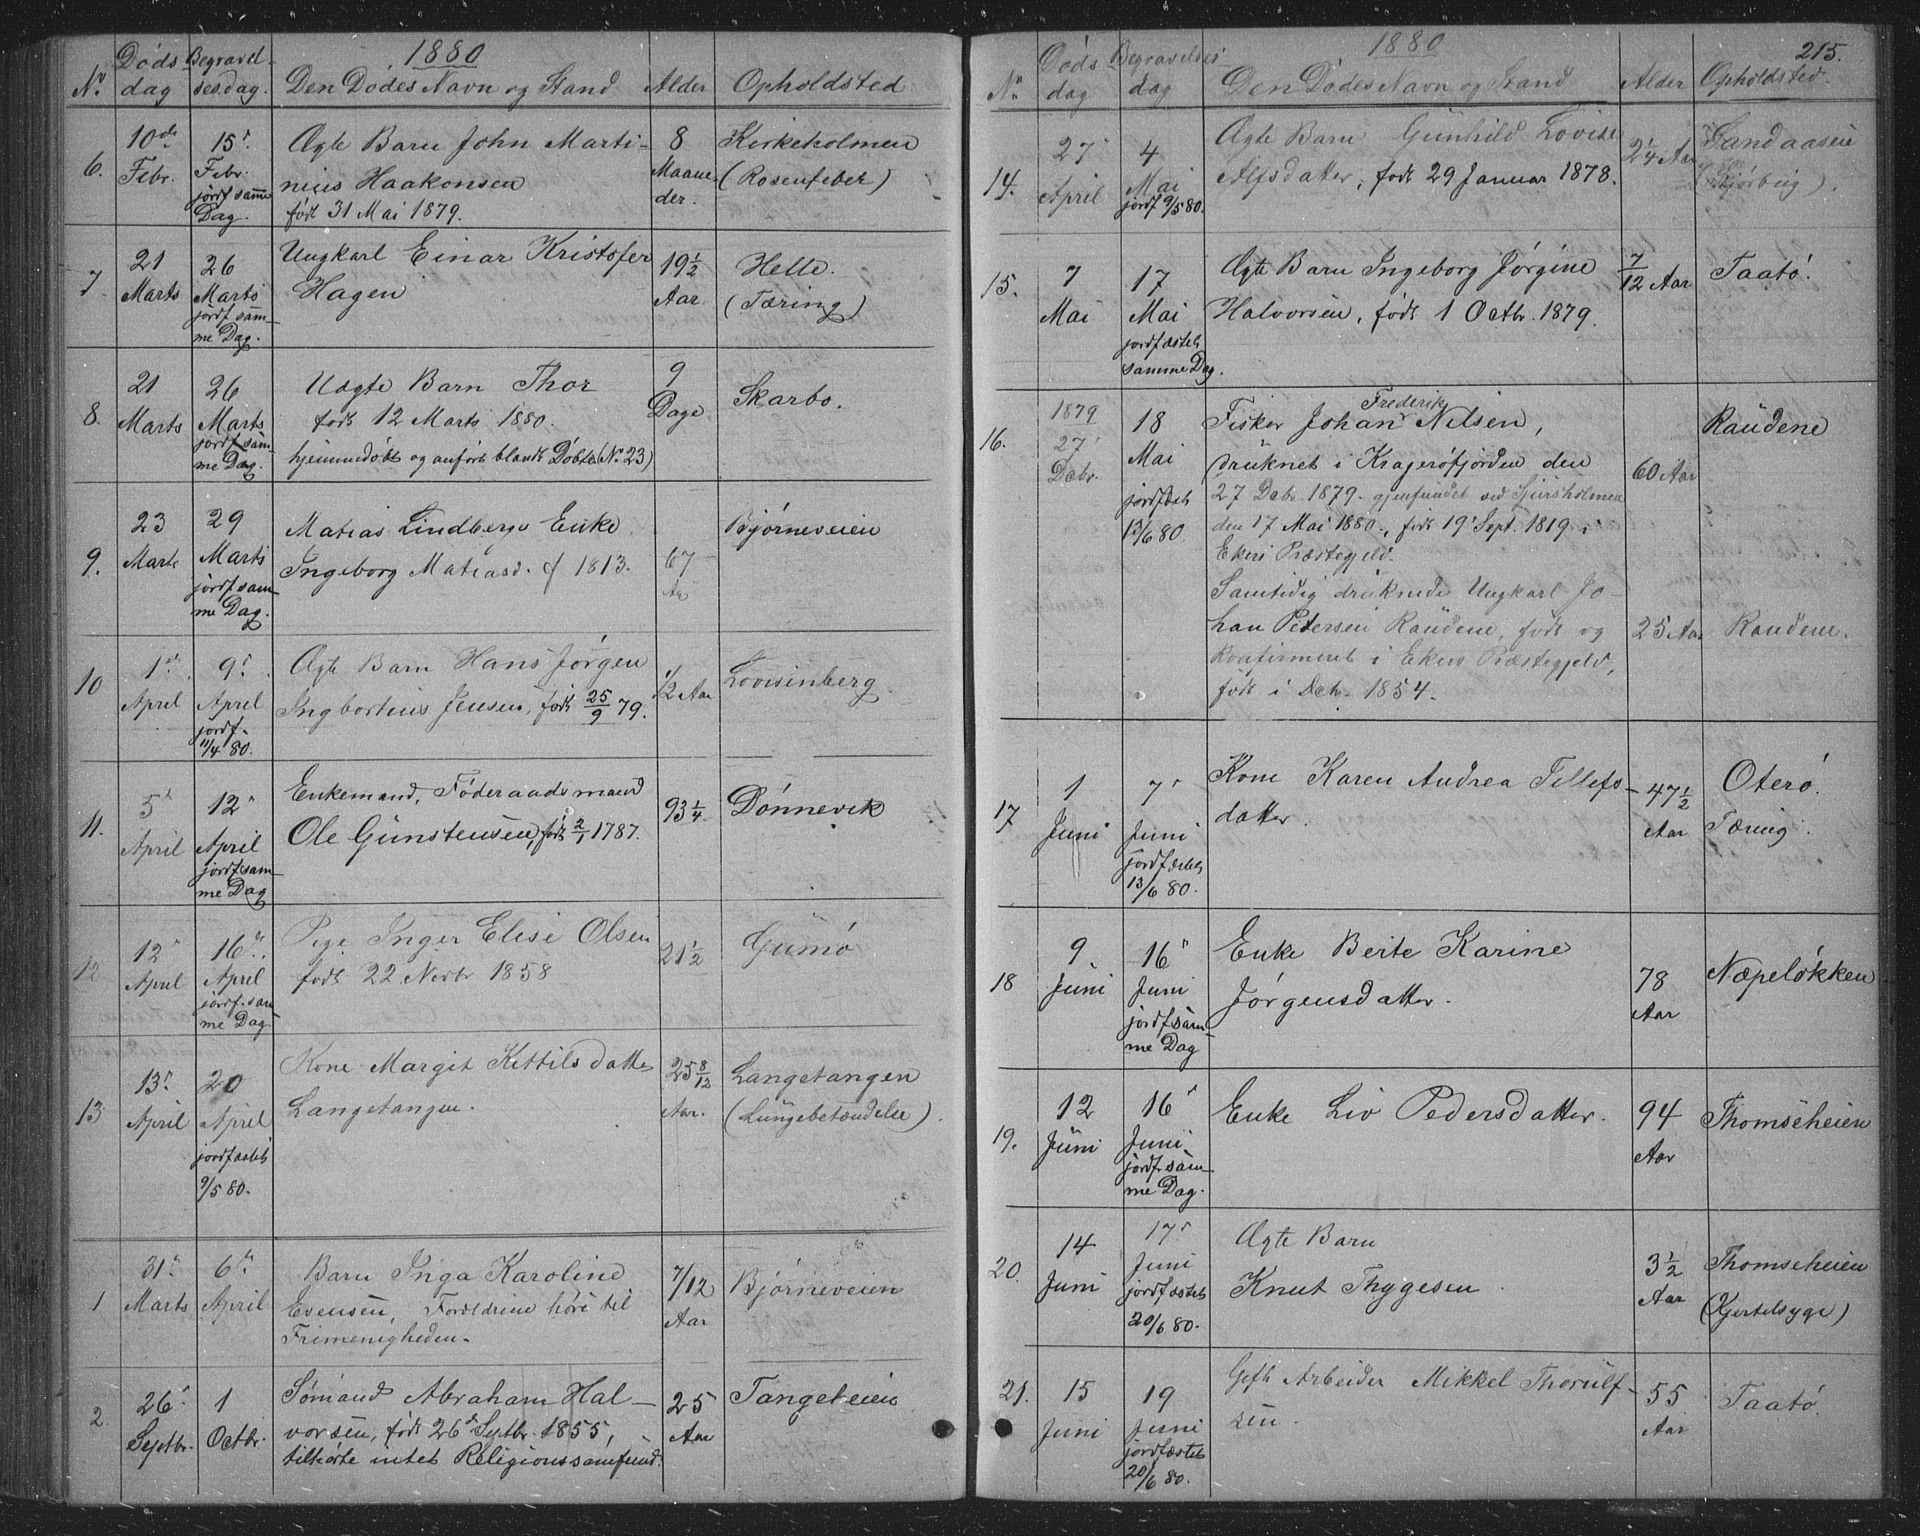 1880
No. Døds dag Begravelsesdag. Den Dødes Navn og Stand Alder Opholdsted.
6. 10de Febr. 15 Febr. jordf samme Dag. Ægte Barn John Marti-
nius Haakonsen
født 31 Mai 1879. 8 Maaneder. Kirkeholmen
(Rosenfeber)
7 21 Marts 26 Marts jordf samme Dag. Ungkarl Einar Kristofer
Hagen 19½ Aar Helle.
(Tæring)
8. 21 Marts 26 Marts jordf samme Dag. Uægte Barn Thor
født 12 Marts 1880.
hjemmedøbt og anført blandt Døbte (No. 23) 9 Dage Skarbo.
9. 23 Marts 29 Marts jordf samme Dag. Matias Lindbergs Enke
Ingeborg Matiasd. f 1813. 67 Aar Bjørneveien
10 1 April 9 April jordf. 11/4 80. Ægte Barn Hans Jørgen
Ingbortius Jensen, født 25/9 79. ½ Aar Lovisenberg
11. 5 April 12 April jordf samme Dag Enkemand, Føderaadsmand
Ole Gunstensen, født 2/1 1787. 93¼ Dønnevik
12 12 April 16 April jordf. samme Dag. Pige Inger Elise Olsen
født 22 Novbr 1858 21½ Gumø
13 13 April 20 April jordfæstet 9/5 80. Kone Margit Kittilsdatter
Langetangen. 25 8/12 Aar. Langetangen
(Lungebetændelse).
1 31 Marts 6 April Barn Inga Karoline
Evensen, Forældrene høre til
Frimenigheden. 7/12 Aar Bjørneveien
2. 26 Septbr. 1 Octbr. Sømand Abraham Hal-
vorsen, født 26 Septbr. 1855,
tilhørte intet Religionssamfund. 25 Aar Tangeheien
1880 215.
No. Døds dag Begravelses dag Den Dødes Navn og Stand Alder Opholdsted.
14. 27 April 4 Mai jordf 9/5 80. Ægte Barn Gunhild Lovise
Alfsdatter, født 29 Januar 1878. 2¼ Aar Sandaasen
15. 7 Mai 17 Mai jordfæstet samme Dag. Ægte Barn Ingeborg Jørgine
Halvorsen, født 1 Octbr. 1879. 7/12 Aar Taatø.
16. 1879 27 Decbr. 18 Mai jordfæst 13/6 80. Fisker Johan Frederik Nilsen,
druknet i Kragerøfjorden den
27 Decbr 1879. gjenfundet ved Sjursholmen
den 17 Mai 1880., født 19 Sept. 1819 i
Ekers Præstegjeld. 60 Aar Raudene
Samtidig druknede Ungkarl Jo-
han Petersen Raudene, født og
konfirmeret i Ekers Præstegjeld,
født i Decbr. 1854. 25 Aar Raudene.
17 1 Juni 7 Juni jordfæstet 13/6 80. Kone Karen Andrea Tellefs-
datter. 47½ Aar Oterø.
Tæring.
18 9. Juni 16 Juni jordf samme Dag Enke Berte Karine
Jørgensdatter. 78 Aar Næpeløkken
19. 12 Juni 16 Juni jordf. samme Dag. Enke Liv Pedersdatter. 94 Aar Thomseheien
20. 14 Juni 17 Juni jordfæstet 20/6 80. Ægte Barn
Knut Thygesen. 3½ Aar Thomseheien
(Kjertelsyge)
21. 15 Juni 19 Juni jordfæstet 20/6 80. Gift Arbeider Mikkel Thorulf-
sen. 55 Aar Taatø.